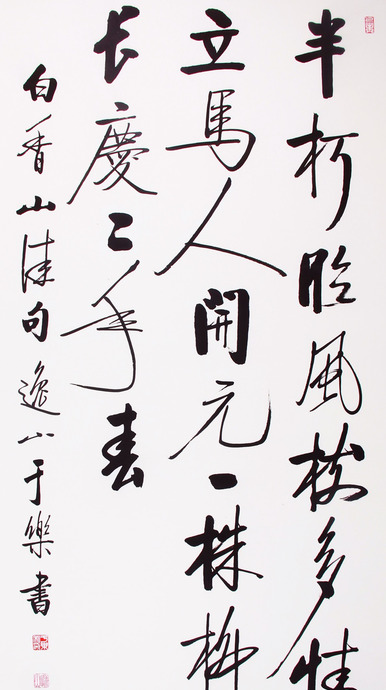 半朽臨風樹多情
立馬人開元一株柳
長慶二年春
白香山佳句逸山于樂書